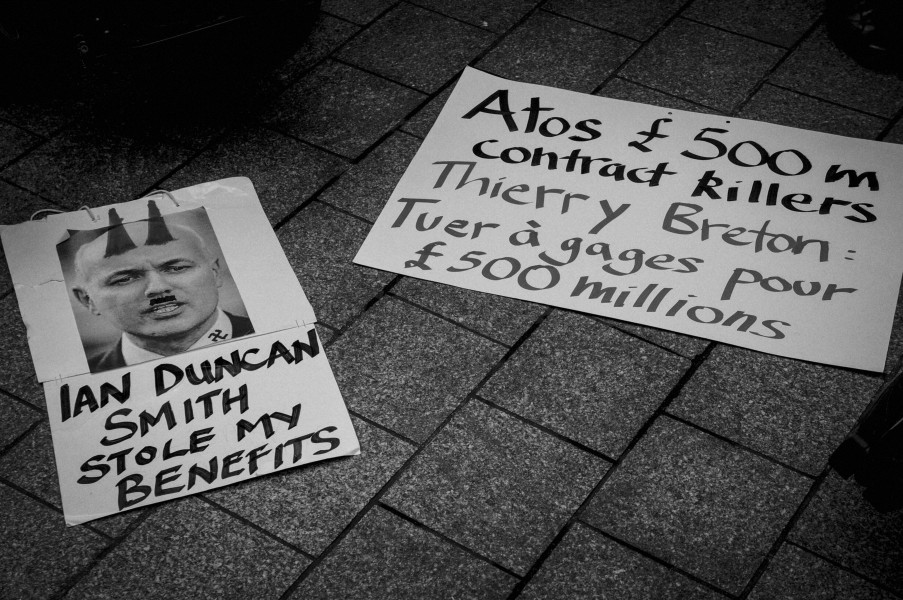 IAN DUNCAN
SMITH
STOLE MY
BENEFITS
Atos £500m
contract killers
Thierry Breton:
Tuer à gages pour
£500 millions